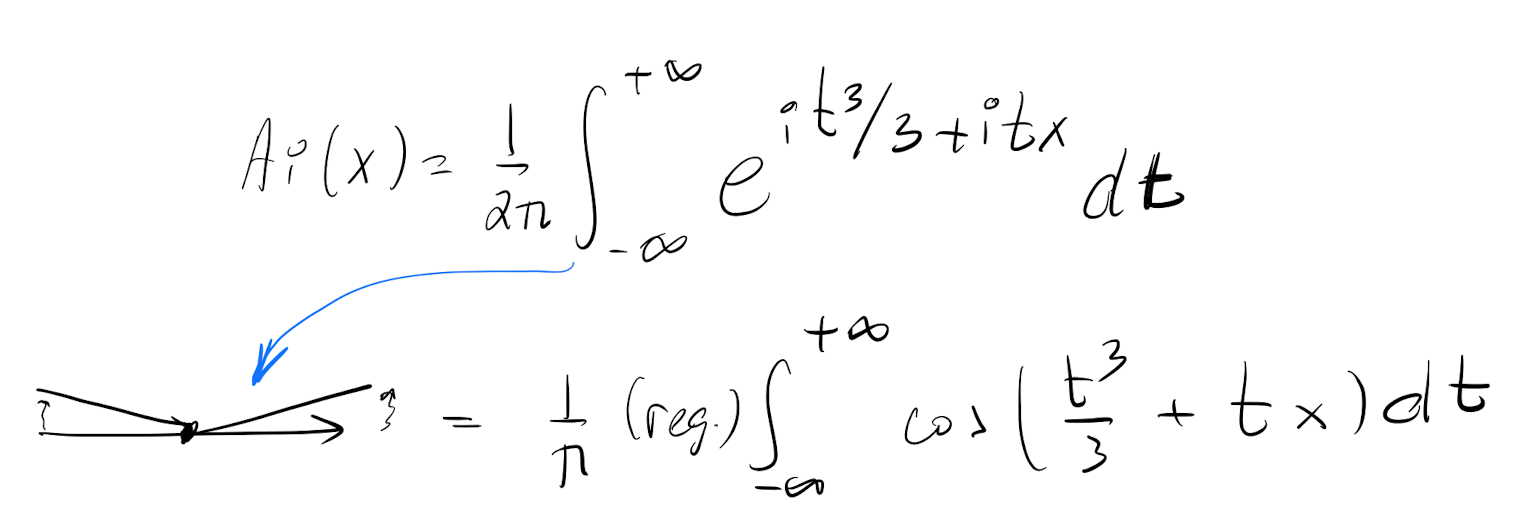 Ai(x) = \frac{1}{2\pi} \int_{-\infty}^{+\infty} e^{it^3/3+itx} dt
= \frac{1}{\pi} (reg.) \int_{-\infty}^{+\infty} cos(\frac{t^3}{3} + tx) dt